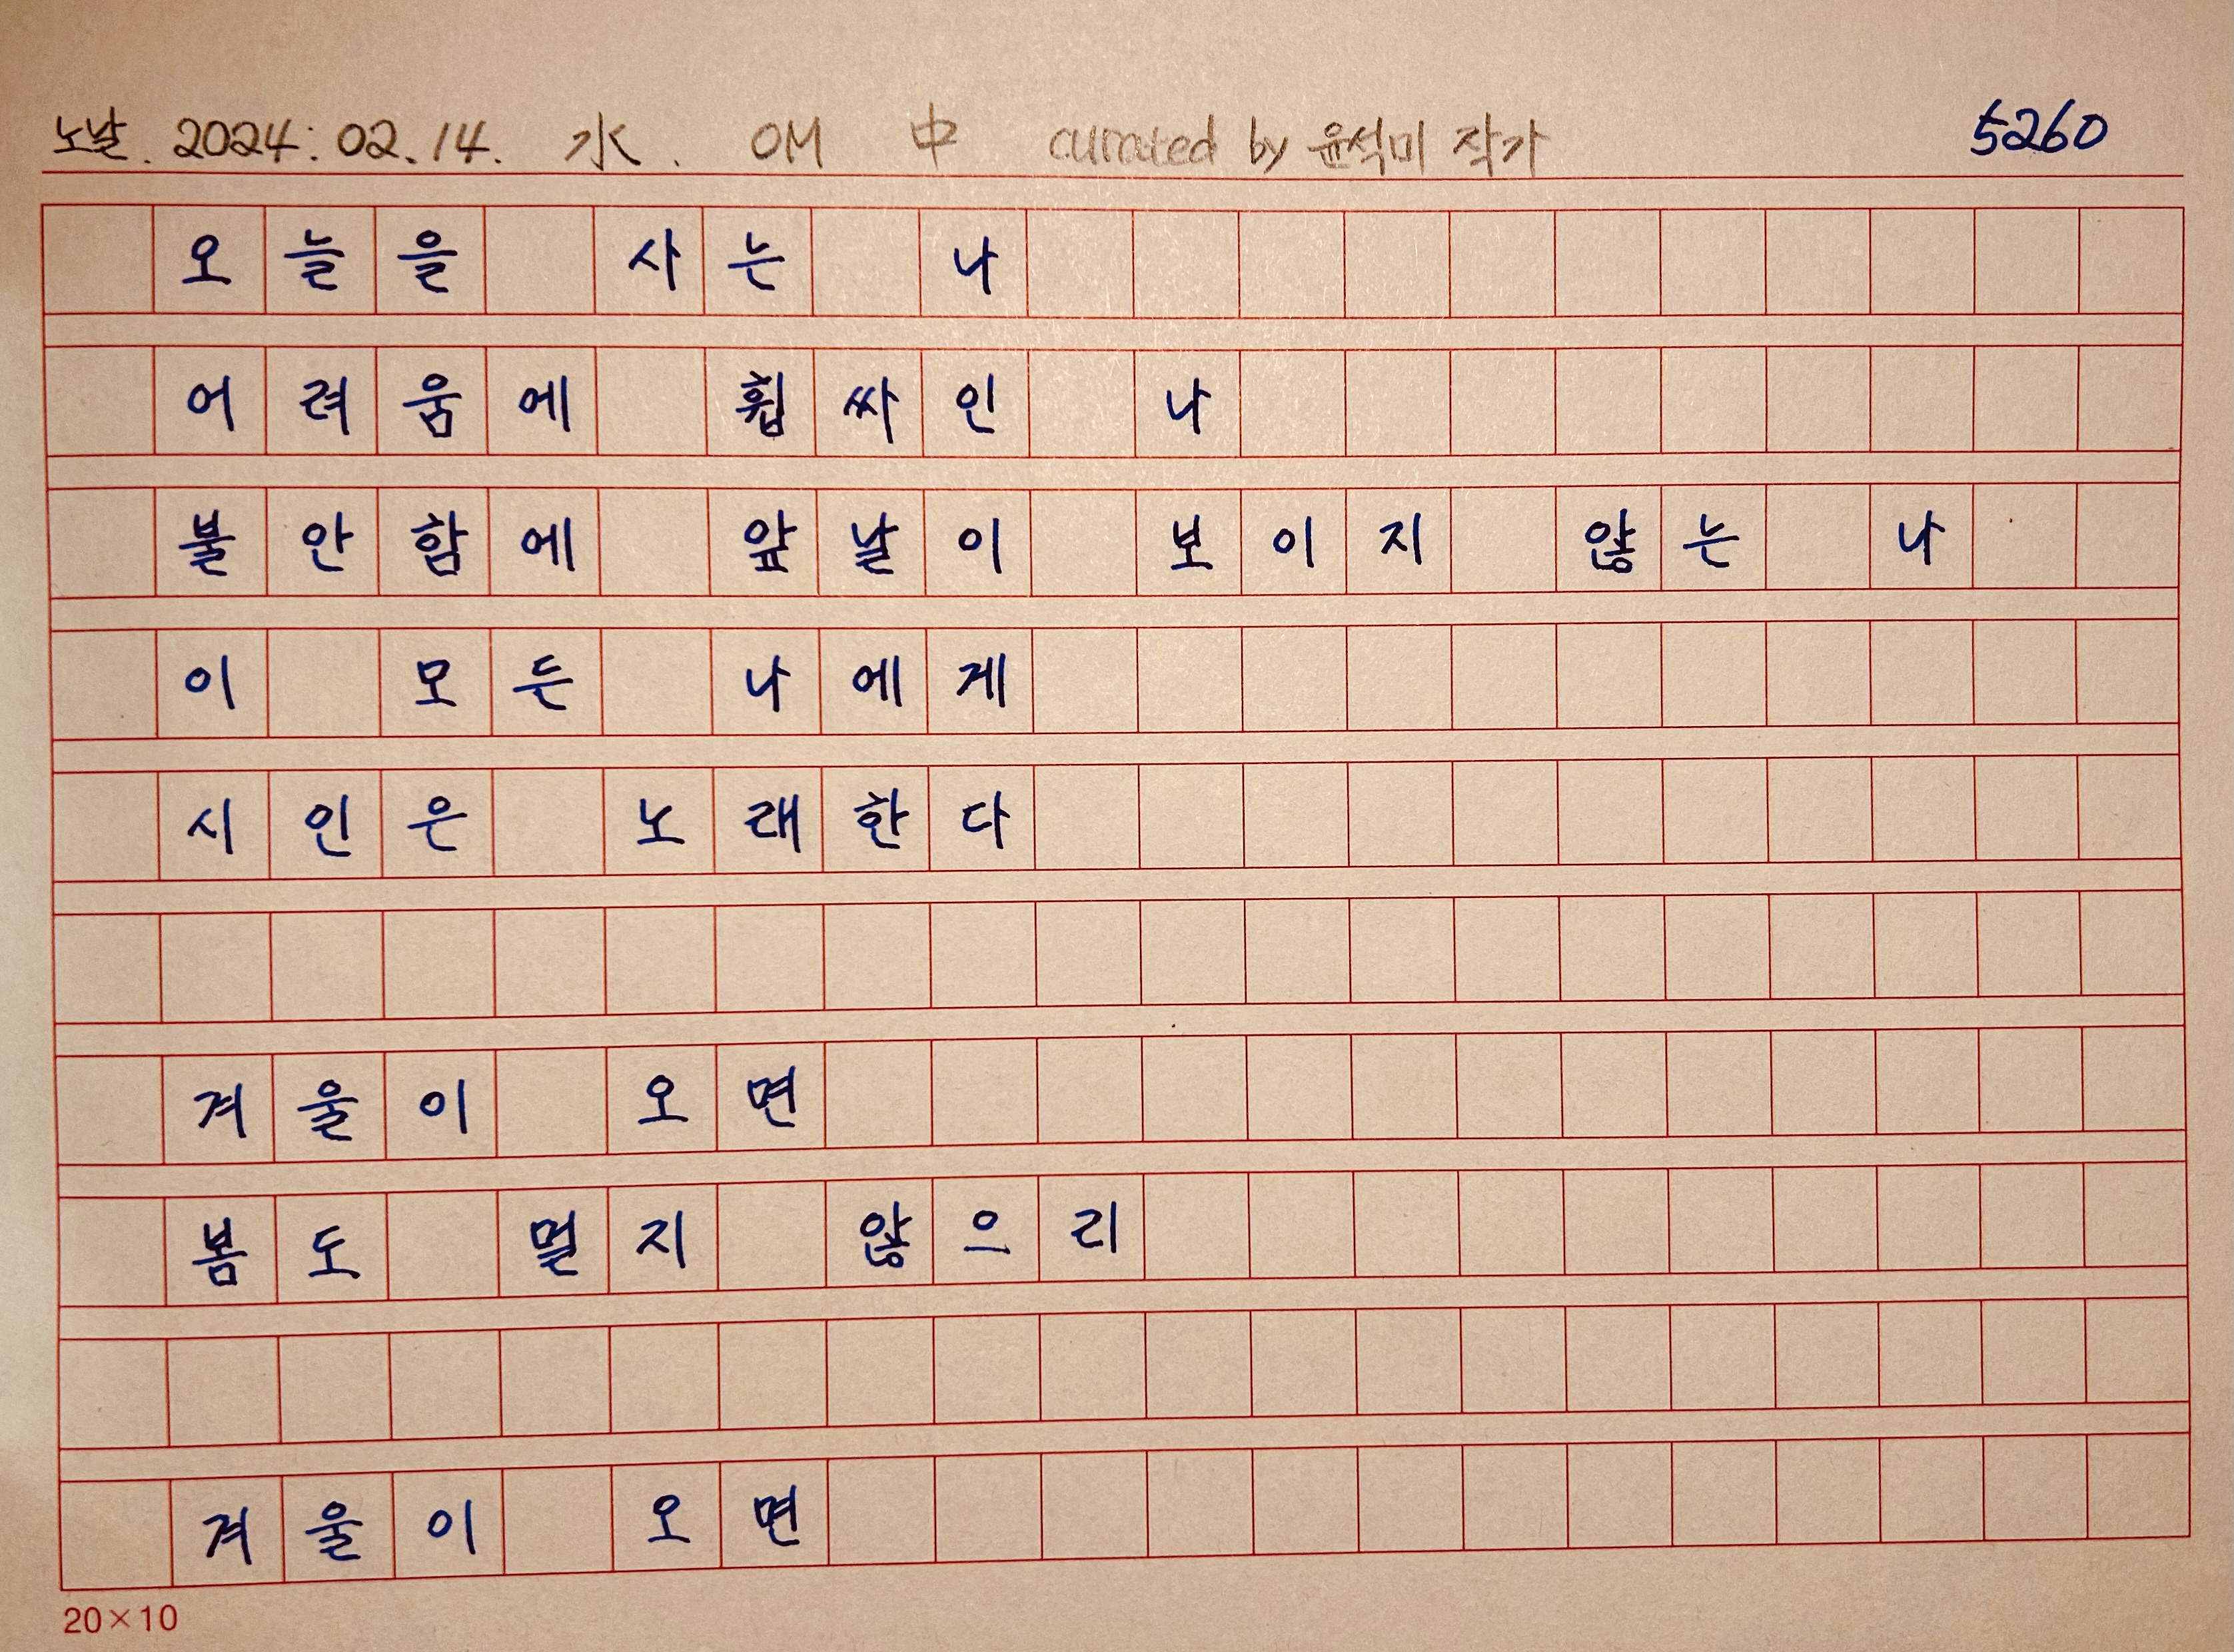 노날. 2024. 02. 14. 水. OM 中 curated by 윤석미 작가 5260
오늘을 사는 나
어려움에 휩싸인 나
불안함에 앞날이 보이지 않는 나
이 모든 나에게
시인은 노래한다
겨울이 오면
봄도 멀지 않으리
겨울이 오면
20×10